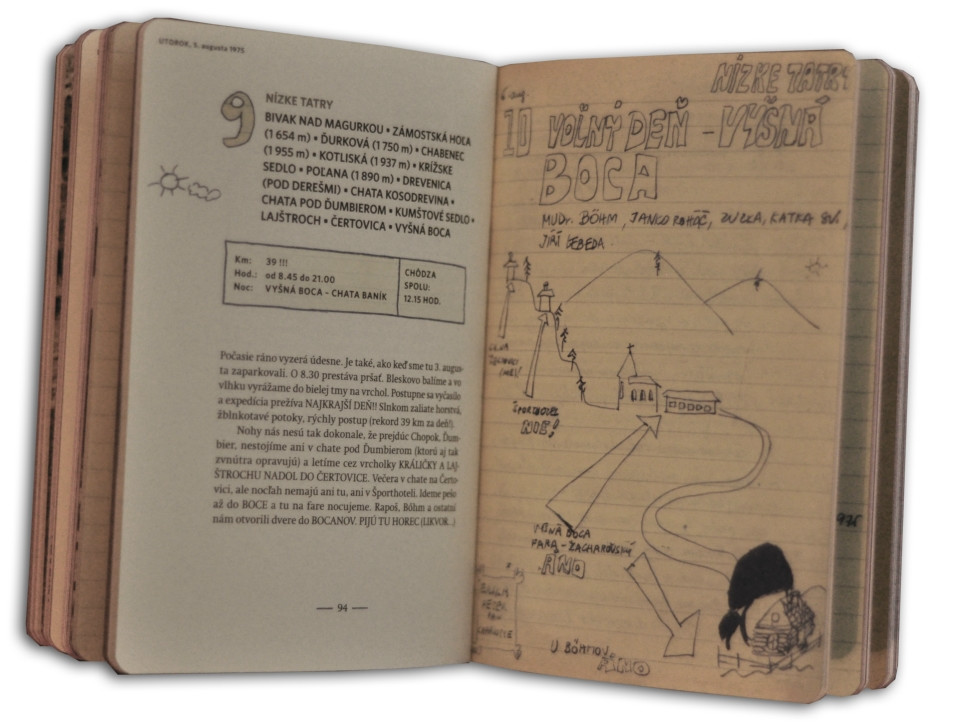 UTOROK, 5. augusta 1975
9
NÍZKE TATRY
BIVAK NAD MAGURKOU • ZÁMOSTSKÁ HOĽA
(1 654 m) • ĎURKOVÁ (1 750 m) • CHABENEC
(1 955 m) • KOTLISKÁ (1 937 m) • KRÍŽSKE
SEDLO • POĽANA (1 890 m) • DREVENICA
(POD DEREŠMI) • CHATA KOSODREVINA •
CHATA POD ĎUMBIEROM • KUMŠTOVÉ SEDLO •
LAJŠTROCH • ČERTOVICA • VYŠNÁ BOCA
Km: 39 !!!
Hod.: od 8.45 do 21.00
Noc: VYŠNÁ BOCA – CHATA BANÍK
CHÔDZA
SPOLU:
12.15 HOD.
Počasie ráno vyzerá údesne. Je také, ako keď sme tu 3. augus-
ta zaparkovali. O 8.30 prestáva pršať. Bleskovo balíme a vo
vlhku vyrážame do bielej tmy na vrchol. Postupne sa vyčasilo
a expedícia prežíva NAJKRAJŠÍ DEŇ!! Slnkom zaliate horstvá,
žblnkotavé potoky, rýchly postup (rekord 39 km za deň!).
Nohy nás nesú tak dokonale, že prejdúc Chopok, Ďum-
bier, nestojíme ani v chate pod Ďumbierom (ktorú aj tak
zvnútra opravujú) a letíme cez vrcholky KRÁLIČKY A LAJ-
ŠTROCHU NADOL DO ČERTOVICE. Večera v chate na Čerto-
vici, ale nocľah nemajú ani tu, ani v Športhoteli. Ideme pešo
až do BOCE a tu na fare nocujeme. Rapoš, Böhm a ostatní
nám otvorili dvere do BOCANOV. PIJÚ TU HOREC (LIKVOR...)
— 94 —
NÍZKE TATRY
6. aug.
10 VOĽNÝ DEŇ – VYŠNÁ
BOCA
MUDr. BÖHM, JANKO ROHÁČ, ZUZKA, KATKA
JIŘÍ LEBEDA
ŠPORTHOTEL
NIE!
VYŠNÁ BOCA
FARA – ZACHAROVSKÝ
ÁNO
U BÖHMOV
ÁNO
975